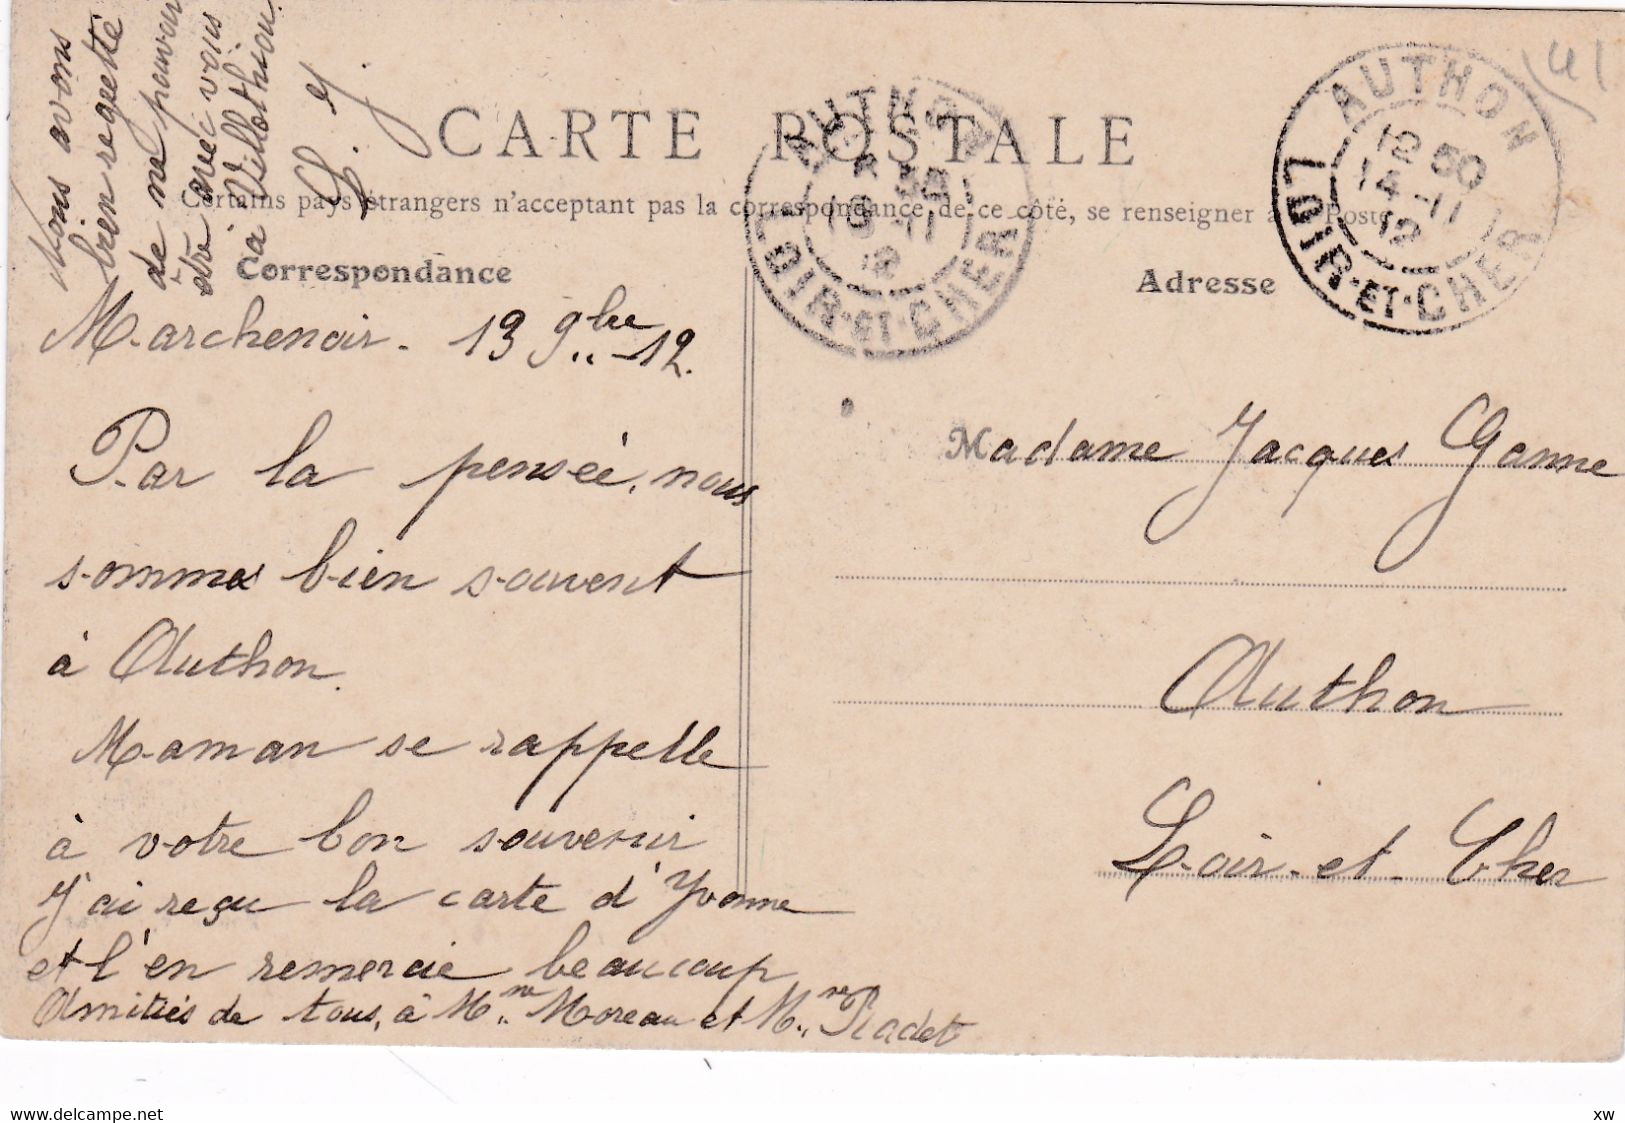 Nous avons
bien regretté
de ne pouvoir
être avec vous
à Villethiou.
CARTE POSTALE
Certains pays étrangers n'acceptant pas la correspondance de ce côté, se renseigner à la Poste
Correspondance
Marchenoir. 13 9bre 12.
Par la pensée, nous
sommes bien souvent
à Authon.
Maman se rappelle
à votre bon souvenir
J'ai reçu la carte d'Yvonne
et l'en remercie beaucoup
Amitiés de tous, à Mme Moreau et Mme Radet
AUTHON
LOIR-ET-CHER
AUTHON
12 50
14-11
12
LOIR-ET-CHER
41
Adresse
Madame Jacques Ganne
Authon
Loir-et-Cher
www.delcampe.net
xw